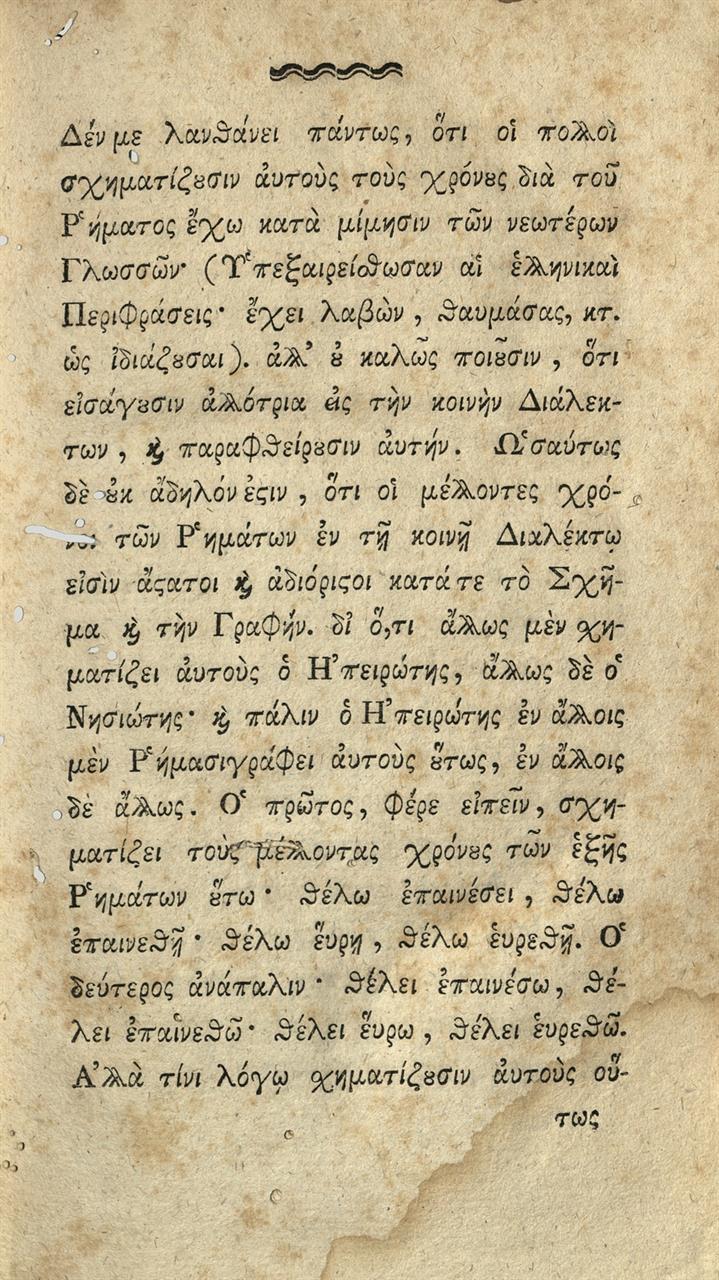 Δέν με λανθάνει πάντως, ὅτι οἱ πολλοὶ
σχηματίζȣσιν ἀυτοὺς τοὺς χρόνȣς διὰ τοῦ
Ῥήματος ἔχω κατὰ μίμησιν τῶν νεωτέρων
Γλωσσῶν· (Ὑπεξαιρείσθωσαν αἱ ἑλληνικαὶ
Περιφράσεις· ἔχει λαβὼν, θαυμάσας, κτ.
ὡς ἰδιάζȣσαι). ἀλλ' ȣ̓ καλῶς ποιȣ͂σιν, ὅτι
εἰσάγȣσιν ἀλλότρια εἰς τὴν κοινὴν Διάλεκ-
των, ϗ παραφθείρȣσιν ἀυτήν. Ὡσαύτως
δὲ ȣ̓κ ἄδηλόν ἐϛιν, ὅτι οἱ μέλλοντες χρό-
νοι τῶν Ῥημάτων ἐν τῇ κοινῇ Διαλέκτῳ
εἰσὶν ἄϛατοι ϗ ἀδιόριϛοι κατά τε τὸ Σχῆ-
μα ϗ τὴν Γραφήν. δἰ ὅ,τι ἄλλως μὲν σχη-
ματίζει ἀυτοὺς ὁ Ἠπειρώτης, ἄλλως δὲ ὁ
Νησιώτης· ϗ πάλιν ὁ Ἠπειρώτης ἐν ἄλλοις
μὲν Ῥήμασιγράφει ἀυτοὺς ȣ̔́τως, ἐν ἄλλοις
δὲ ἄλλως. Ὁ πρῶτος, φέρε εἰπεῖν, σχη-
ματίζει τοὺς μέλλοντας χρόνȣς τῶν ἑξῆς
Ῥημάτων ȣ̔́τω· θέλω ἐπαινέσει, θέλω
ἐπαινεθῇ· θέλω ἕυρῃ, θέλω ἑυρεθῇ. Ὁ
δεύτερος ἀνάπαλιν· θέλει ἐπαινέσω, θέ-
λει ἐπαινεθῶ· θέλει ἕυρω, θέλει ἑυρεθῶ.
Ἀλλὰ τίνι λόγῳ σχηματίζȣσιν ἀυτοὺς οὕ-
τως